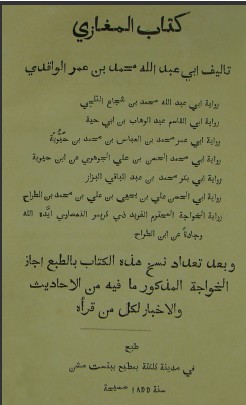 كتاب المغازي
تاليف ابي عبد الله محمد بن عمر الواقدي
رواية ابي عبد الله محمد بن شجاع الثلجي
رواية ابي القاسم عبد الوهاب بن ابي حية
رواية ابي عمر محمد بن العباس بن محمد بن حيّويَة
رواية ابي محمد الحسن بن علي الجوهري عن ابن حيوية
رواية ابي بكر محمد بن عبد الباقي البزاز
رواية ابي الحسن علي بن يحيى بن علي بن محمد بن الطراح
رواية الخواجة المحتوم الفريد ذي كريمر النمساوي ايّده الله
وجادةً عن ابن الطراح
وبعد تعداد نسخ هذه الكتاب بالطبع اجاز
الخواجة المذكور ما فيه من الاحاديث
والاخبار لكل من قرأه
طبع
في مدينة كلكتة بمطبع ببتست مشن
سنة ١٨٥٥ مسيحية